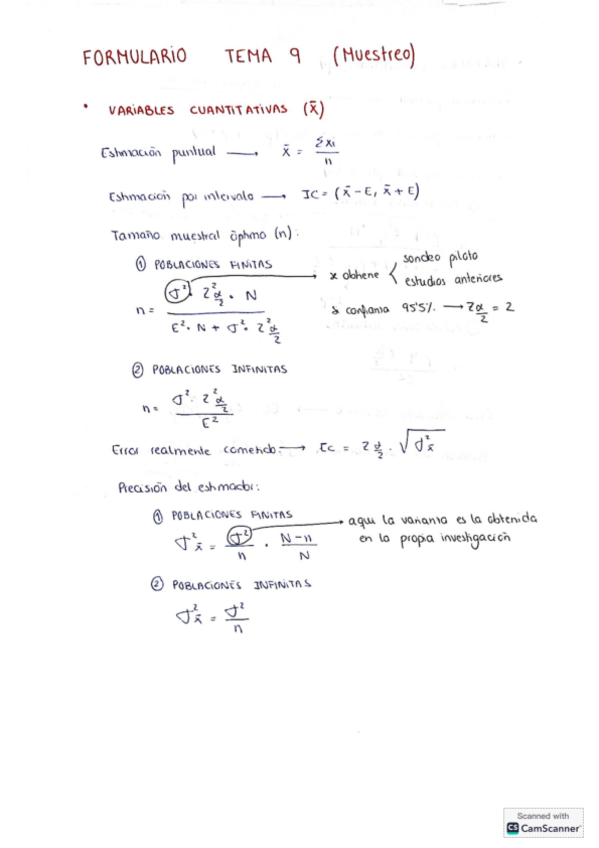 FORMULARIO TEMA 9 (Muestreo)
• VARIABLES CUANTITATIVAS (x̄)
Estimación puntual → x̄ = Σxi / n
Estimación por intervalo → IC = (x̄ - E, x̄ + E)
Tamaño muestral óptimo (n):
① POBLACIONES FINITAS
n = σ² · Z²α/2 · N / E² · N + σ² · Z²α/2
→ se obtiene < sondeo piloto
estudios anteriores
confianza 95'5% → Zα/2 = 2
② POBLACIONES INFINITAS
n = σ² · Z²α/2 / E²
Error realmente cometido: → Ec = Zα/2 · √σ²x̄
Precisión del estimador:
① POBLACIONES FINITAS
σ²x̄ = σ²/n · N-n/N
→ aquí la varianza es la obtenida
en la propia investigación
② POBLACIONES INFINITAS
σ²x̄ = σ²/n
Scanned with
CS CamScanner